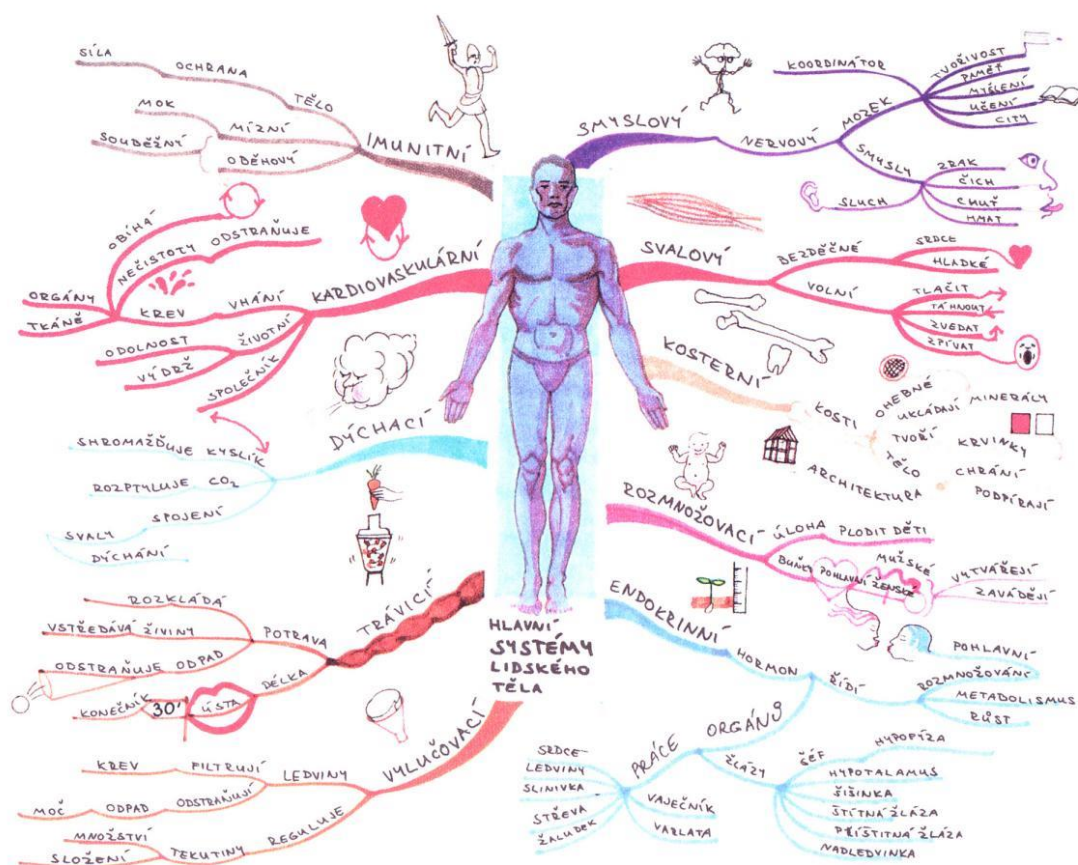 HLAVNÍ
SYSTÉMY
LIDSKÉHO
TĚLA
IMUNITNÍ
TĚLO
OCHRANA
SÍLA
MÍZNÍ
MOK
OBĚHOVÝ
SOUDĚŽNÝ
KARDIOVASKULÁRNÍ
VHÁNÍ
KREV
OBÍHÁ
NEČISTOTY
ODSTRAŇUJE
ORGÁNY
TKÁNĚ
ŽIVOTNÍ
ODOLNOST
VÝDRŽ
SPOLEČNÍK
DÝCHACÍ
KYSLÍK
SHROMAŽĎUJE
CO₂
ROZPTYLUJE
SPOJENÍ
SVALY
DÝCHÁNÍ
TRÁVICÍ
POTRAVA
ROZKLÁDÁ
VSTŘEDÁVÁ ŽIVINY
ODSTRAŇUJE ODPAD
DÉLKA
ÚSTA
30'
KONEČNÍK
VYLUČOVACÍ
LEDVINY
FILTRUJÍ
KREV
ODSTRAŇUJÍ
ODPAD
MOČ
REGULUJE
TEKUTINY
MNOŽSTVÍ
SLOŽENÍ
SMYSLOVÝ
NERVOVÝ
MOZEK
KOORDINÁTOR
TVOŘIVOST
PAMĚŤ
MYŠLENÍ
UČENÍ
CITY
SMYSLY
ZRAK
ČICH
CHUŤ
HMAT
SLUCH
SVALOVÝ
BEZDĚČNÉ
SRDCE
HLADKÉ
VOLNÍ
TLAČIT
TÁHNOUT
ZVEDAT
ZPÍVAT
KOSTERNÍ
KOSTI
OHEBNÉ
UKLÁDAJÍ
MINERÁLY
TVOŘÍ
KRVINKY
TĚLO
CHRÁNÍ
PODPÍRAJÍ
ARCHITEKTURA
ROZMNOŽOVACÍ
ÚLOHA
PLODIT DĚTI
BUŇKY
POHLAVNÍ
MUŽSKÉ
ŽENSKÉ
VYTVÁŘEJÍ
ZAVÁDĚJÍ
ENDOKRINNÍ
HORMON
ŘÍDÍ
POHLAVNÍ
ROZMNOŽOVÁNÍ
METABOLISMUS
RŮST
ORGÁNŮ
PRÁCE
SRDCE
LEDVINY
SLINIVKA
STŘEVA
ŽALUDEK
VAJEČNÍK
VARLATA
ŽLÁZY
ŠÉF
HYPOFÍZA
HYPOTALAMUS
ŠIŠINKA
ŠTÍTNÁ ŽLÁZA
PŘÍŠTITNÁ ŽLÁZA
NADLEDVINKA